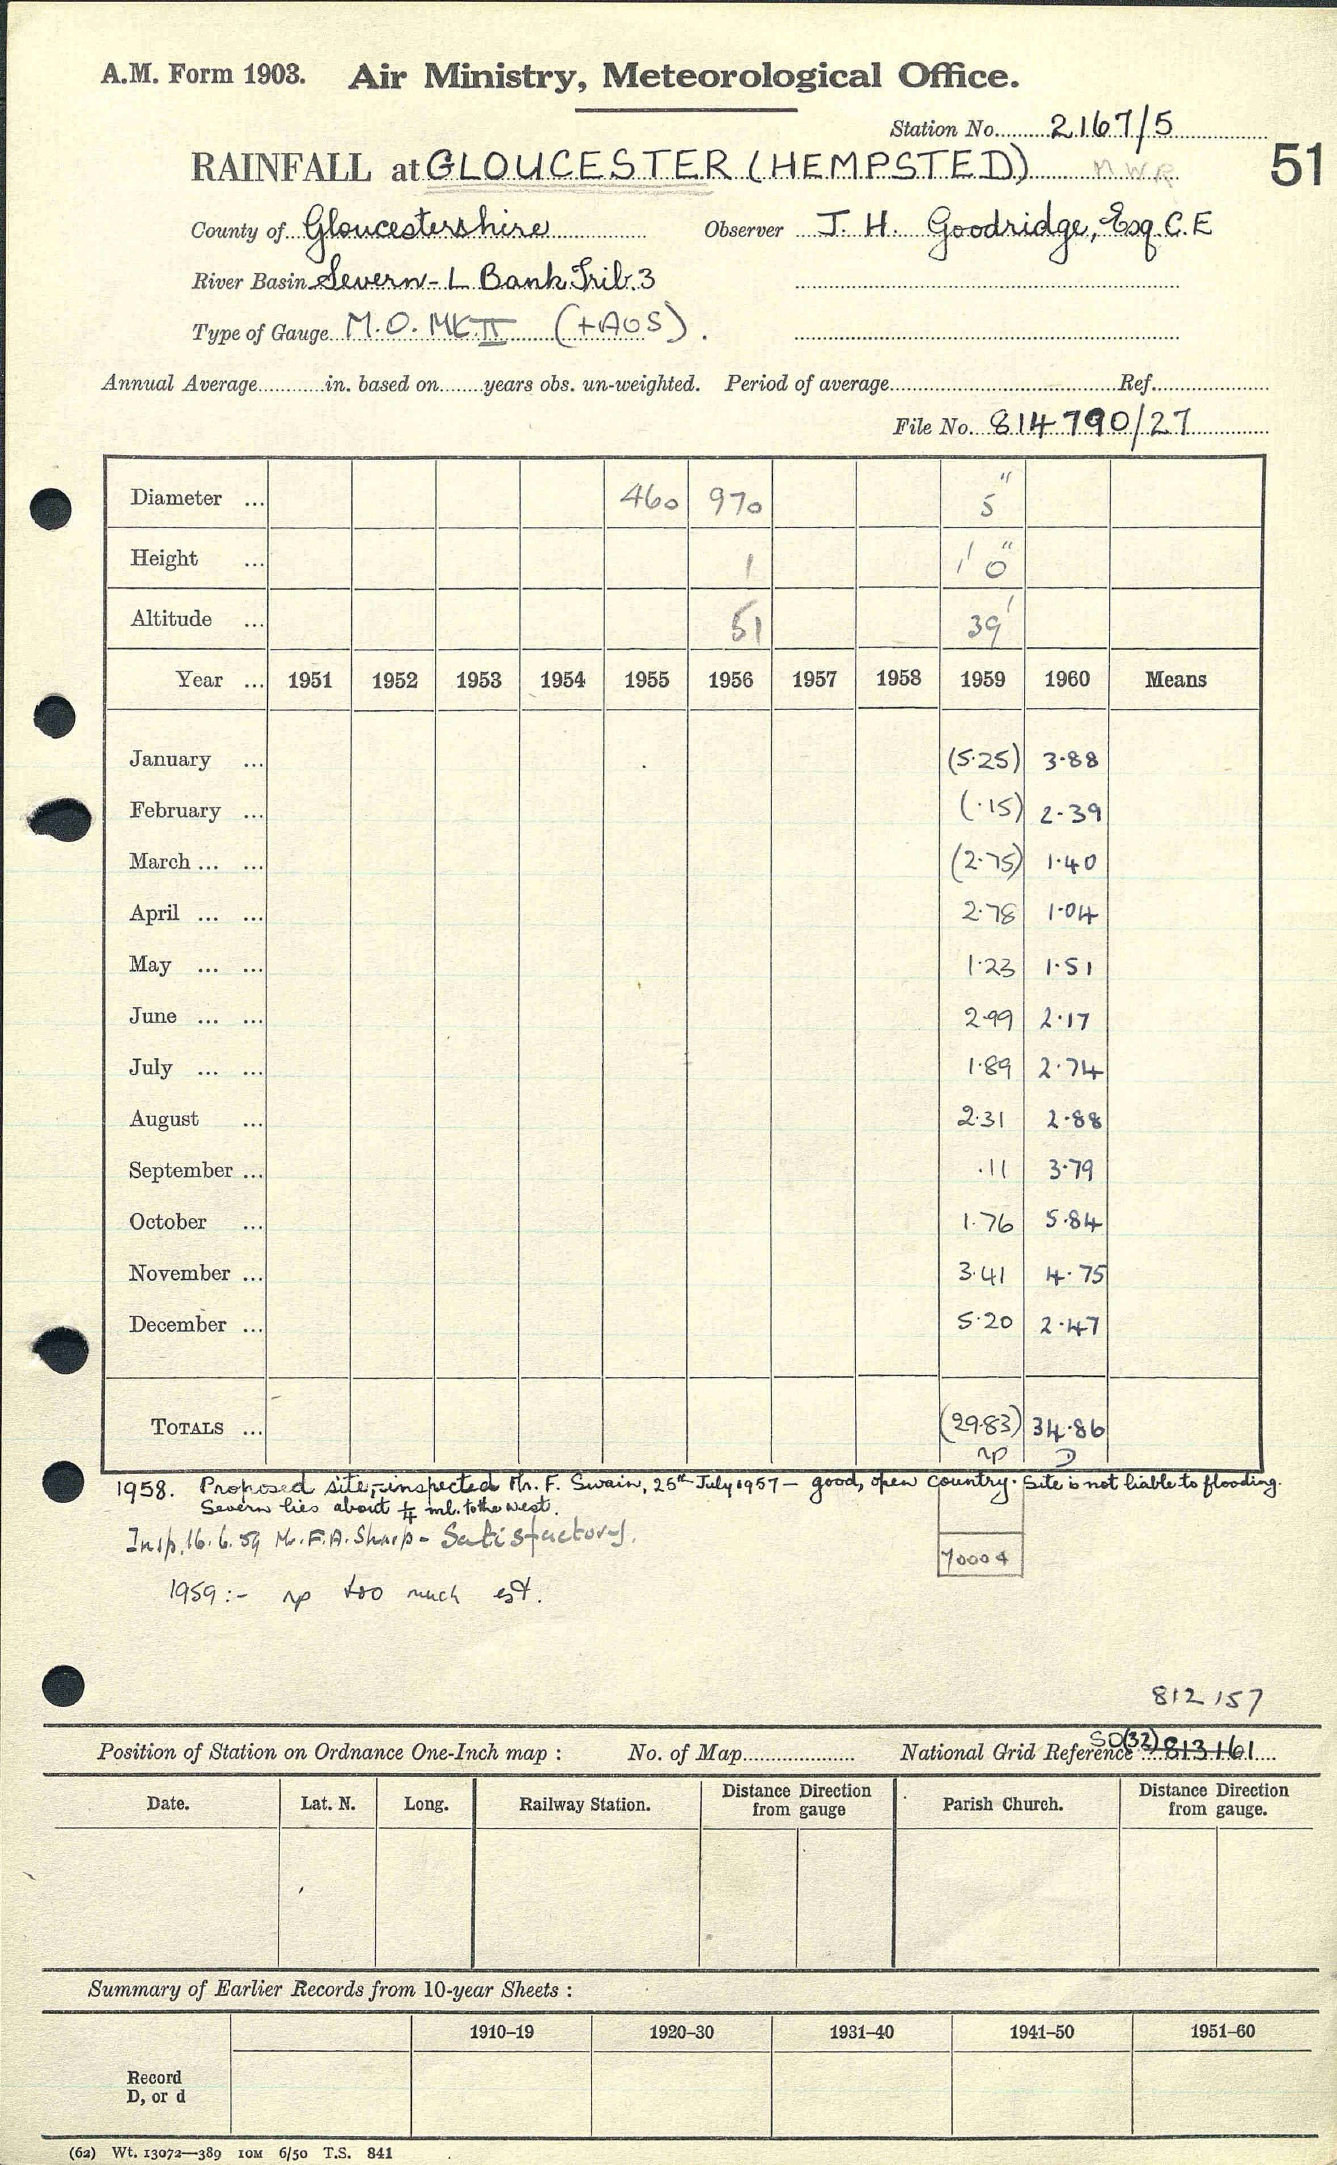 A.M. Form 1903. Air Ministry, Meteorological Office.
Station No. 2167/5
RAINFALL at GLOUCESTER (HEMPSTED) M.W.R 51
County of Gloucestershire Observer J. H. Goodridge, Esq. C.E
River Basin Severn - L Bank Trib. 3
Type of Gauge M.O. MK II (+AOS).
Annual Average in. based on years obs. un-weighted. Period of average Ref.
File No. 814790/27
Diameter ... 460 970 5"
Height ... 1 1' 0"
Altitude ... 51 39'
Year ... 1951 1952 1953 1954 1955 1956 1957 1958 1959 1960 Means
January ... (5.25) 3.88
February ... (.15) 2.39
March ... ... (2.75) 1.40
April ... ... 2.78 1.04
May ... ... 1.23 1.51
June ... ... 2.99 2.17
July ... ... 1.89 2.74
August ... 2.31 2.88
September ... .11 3.79
October ... 1.76 5.84
November ... 3.41 4.75
December ... 5.20 2.47
TOTALS ... (29.83) 34.86
np D
1958. Proposed site, inspected Mr. F. Swain, 25th July 1957 - good, open country. Site is not liable to flooding.
Severn lies about ¼ ml. to the west.
Insp. 16.6.59 Mr. F.A. Sharp - Satisfactory.
70004
1959:- np too much est.
812 157
Position of Station on Ordnance One-Inch map : No. of Map National Grid Reference SO(32) 813161
Date. Lat. N. Long. Railway Station. Distance Direction from gauge Parish Church. Distance Direction from gauge.
Summary of Earlier Records from 10-year Sheets :
1910–19 1920–30 1931–40 1941–50 1951–60
Record
D, or d
(62) Wt. 13072—389 10M 6/50 T.S. 841